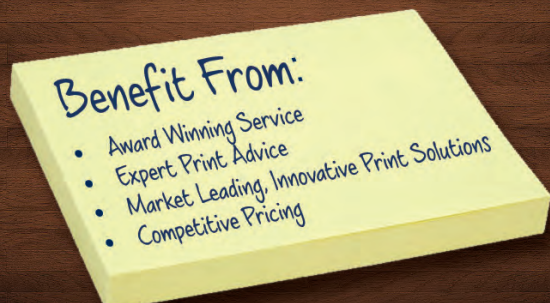 Benefit From:
• Award Winning Service
• Expert Print Advice
• Market Leading, Innovative Print Solutions
• Competitive Pricing